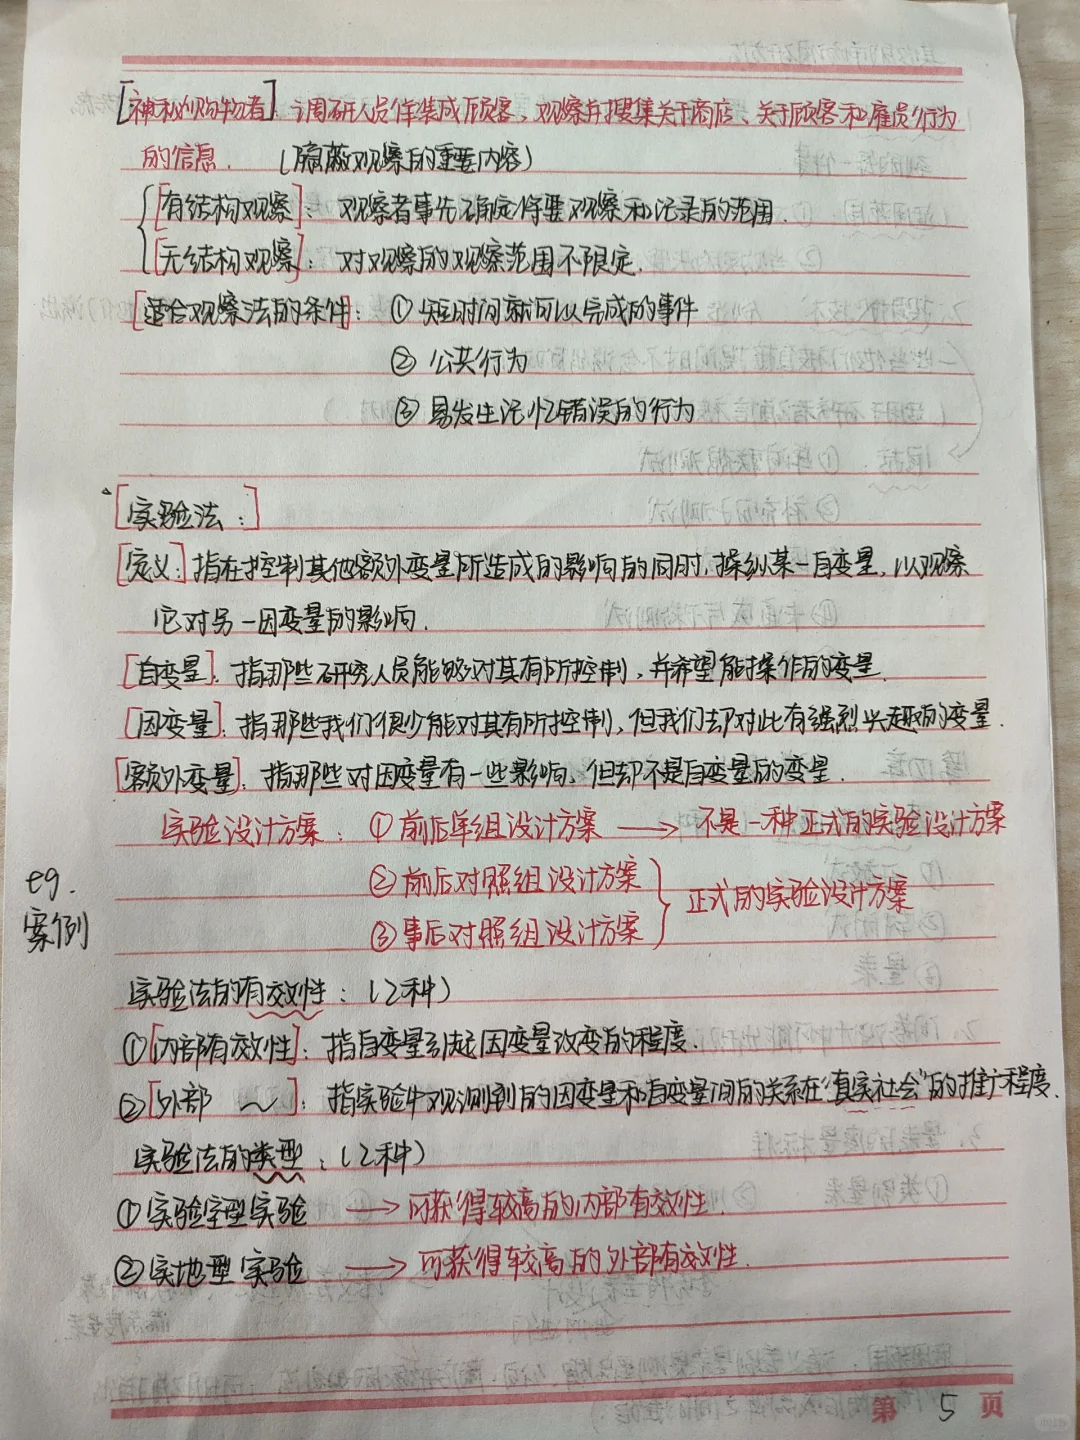 [神秘购物者]：调研人员佯装成顾客，观察并搜集关于商店、关于顾客和雇员行为
的信息. (隐蔽观察的重要内容)
[有结构观察]：观察者事先确定将要观察和记录的范围.
[无结构观察]：对观察的观察范围不限定.
[适合观察法的条件：①短时间就可以完成的事件
②公共行为
③易发生记忆错误的行为
[实验法：]
[定义]：指在控制其他额外变量所造成的影响的同时，操纵某一自变量，以观察
它对另一因变量的影响.
[自变量]：指那些研究人员能够对其有所控制，并希望能操作的变量.
[因变量]：指那些我们很少能对其有所控制，但我们却对此有强烈兴趣的变量.
[额外变量]：指那些对因变量有一些影响，但却不是自变量的变量.
实验设计方案：①前后单组设计方案 → 不是一种正式的实验设计方案
eg.
案例
②前后对照组设计方案
③事后对照组设计方案
正式的实验设计方案
实验法的有效性：(2种)
①[内部有效性]：指自变量引起因变量改变的程度.
②[外部 ～]：指实验中观测到的因变量和自变量间的关系在“真实社会”的推广程度.
实验法的类型：(2种)
①实验室型实验 → 可获得较高的内部有效性.
②实地型实验 → 可获得较高的外部有效性.
第 5 页